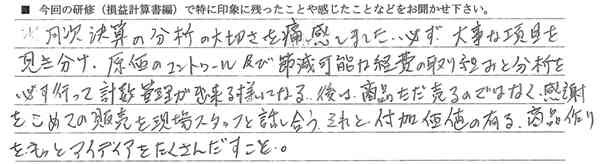 ■ 今回の研修（損益計算書編）で特に印象に残ったことや感じたことなどをお聞かせ下さい。
月次決算の分析の大切さを痛感しました。必ず、大事な項目を
見き分け、原価のコントロール及び節減可能な経費の取り組みと分析を
必ず行って計数管理が出来る様になる。後は、商品ただ売るのではなく、感謝
をこめての販売を現場スタッフと話し合う。それと、付加価値の有る、商品作り
をもっとアイディアをたくさんだすこと。